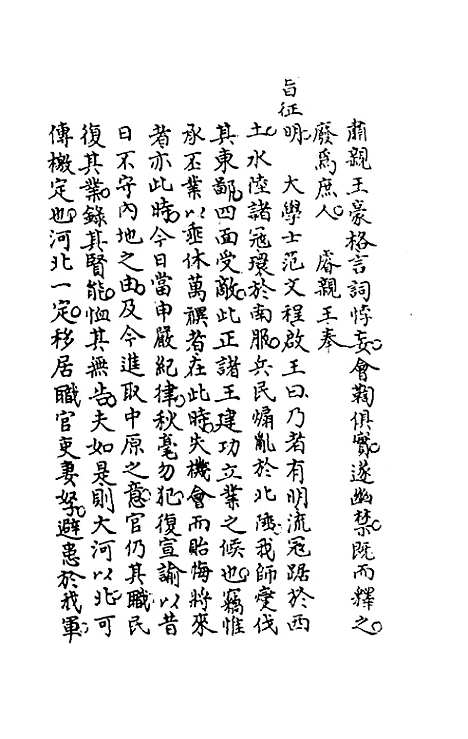 肅親王豪格言詞悖妄會鞫俱實遂幽禁既而釋之
廢爲庶人 睿親王奉
旨征明 大學士范文程啟王曰乃者有明流冦踞於西
土水陸諸冦環於南服兵民煽亂於北陲我師燮伐
其東鄙四面受敵此正諸王建功立業之候也竊惟
承丕業以垂休萬禩者在此時失機會而貽悔將來
者亦此時今日當申嚴紀律秋毫勿犯復宣諭以昔
日不守內地之由及今進取中原之意官仍其職民
復其業錄其賢能恤其無告夫如是則大河以北可
傳檄定也河北一定移居職官吏妻孥避患於我軍